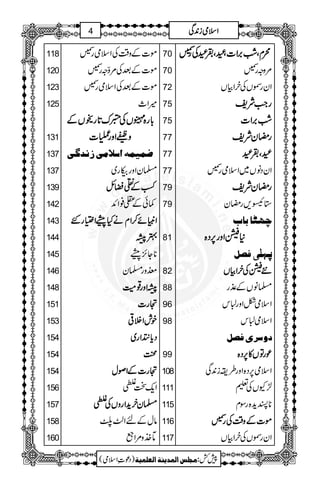 4
اسلامی زندگی
محرم، شب برات، عید، بقرعید کی رسمیں 70
مروجہ رسمیں 70
ان رسموں کی خرابیاں 72
رجب شریف 75
شب برات 75
رمضان شریف 77
عید، بقرعید 77
ان دنوں میں اسلامی رسمیں 77
رمضان شریف 79
ستائیسویں رمضان 79
چھٹا باب
نیا فیشن اور پردہ 81
پہلی فصل
نئے فیشن کی خرابیاں 82
مسلمانوں کے عذر 88
اسلامی شکل اور لباس 96
اسلامی لباس 98
دوسری فصل
عورتوں کا پردہ
اسلامی پردہ اور طریقہ زندگی 108
لڑکیوں کی تعلیم 111
ناپسندیدہ رسوم 115
موت کے وقت کی رسمیں 116
ان رسموں کی خرابیاں 117
موت کے وقت کی اسلامی رسمیں 118
موت کے بعد کی مروجہ رسمیں 120
موت کے بعد کی اسلامی رسمیں 123
میراث 125
بارہ مہینوں کی متبرک تاریخوں کے
وظیفے اور عملیات 131
ضمیمہ اسلامی زندگی 137
مسلمان اور بیکاری 137
کسب کے نقلی فضائل 139
کمائی کے عقلی فوائد 142
انبیائے کرام نے کیا پیشے اختیار کئے 143
بہتر پیشہ 144
ناجائز پیشے 145
معذور مسلمان 146
پیشہ اور قومیت 148
تجارت 151
خوش اخلاقی 153
دیانتداری 154
محنت 154
تجارت کے اصول 154
ایک سخت غلطی 156
مسلمان خریداروں کی غلطی 157
مال کے لئے الٹ پلٹ 158
مآخذ و مراجع 160
پیش کش: مجلس المدینۃ العلمیۃ (دعوت اسلامی)